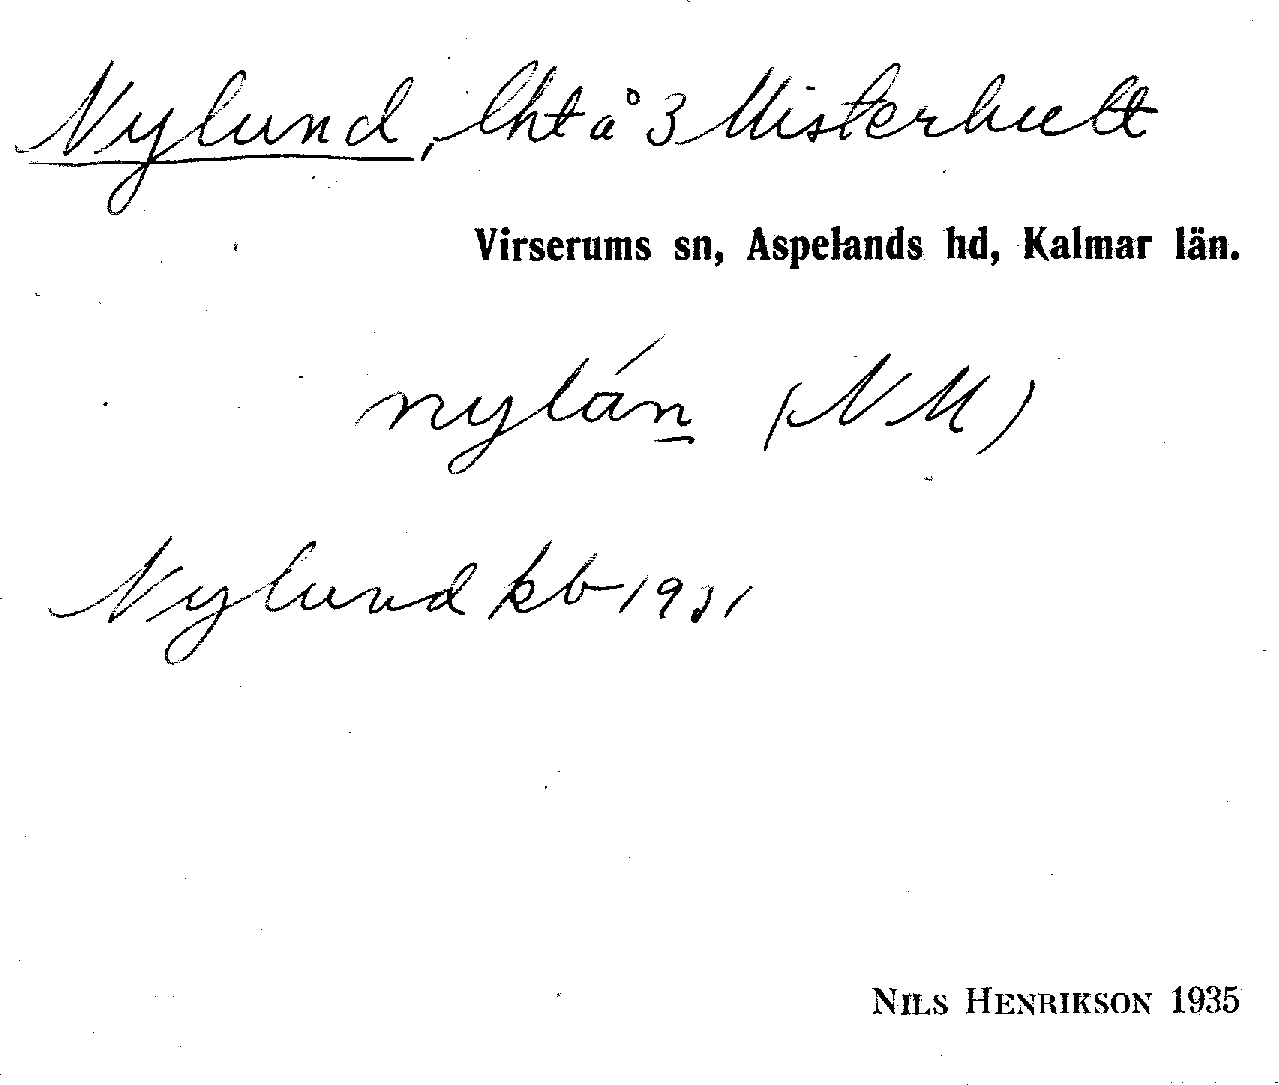 Nylund, lht å 3 Misterhult
Virserums sn, Aspelands hd, Kalmar län.
nylán (NM)
Nylund kb 1931
NILS HENRIKSON 1935